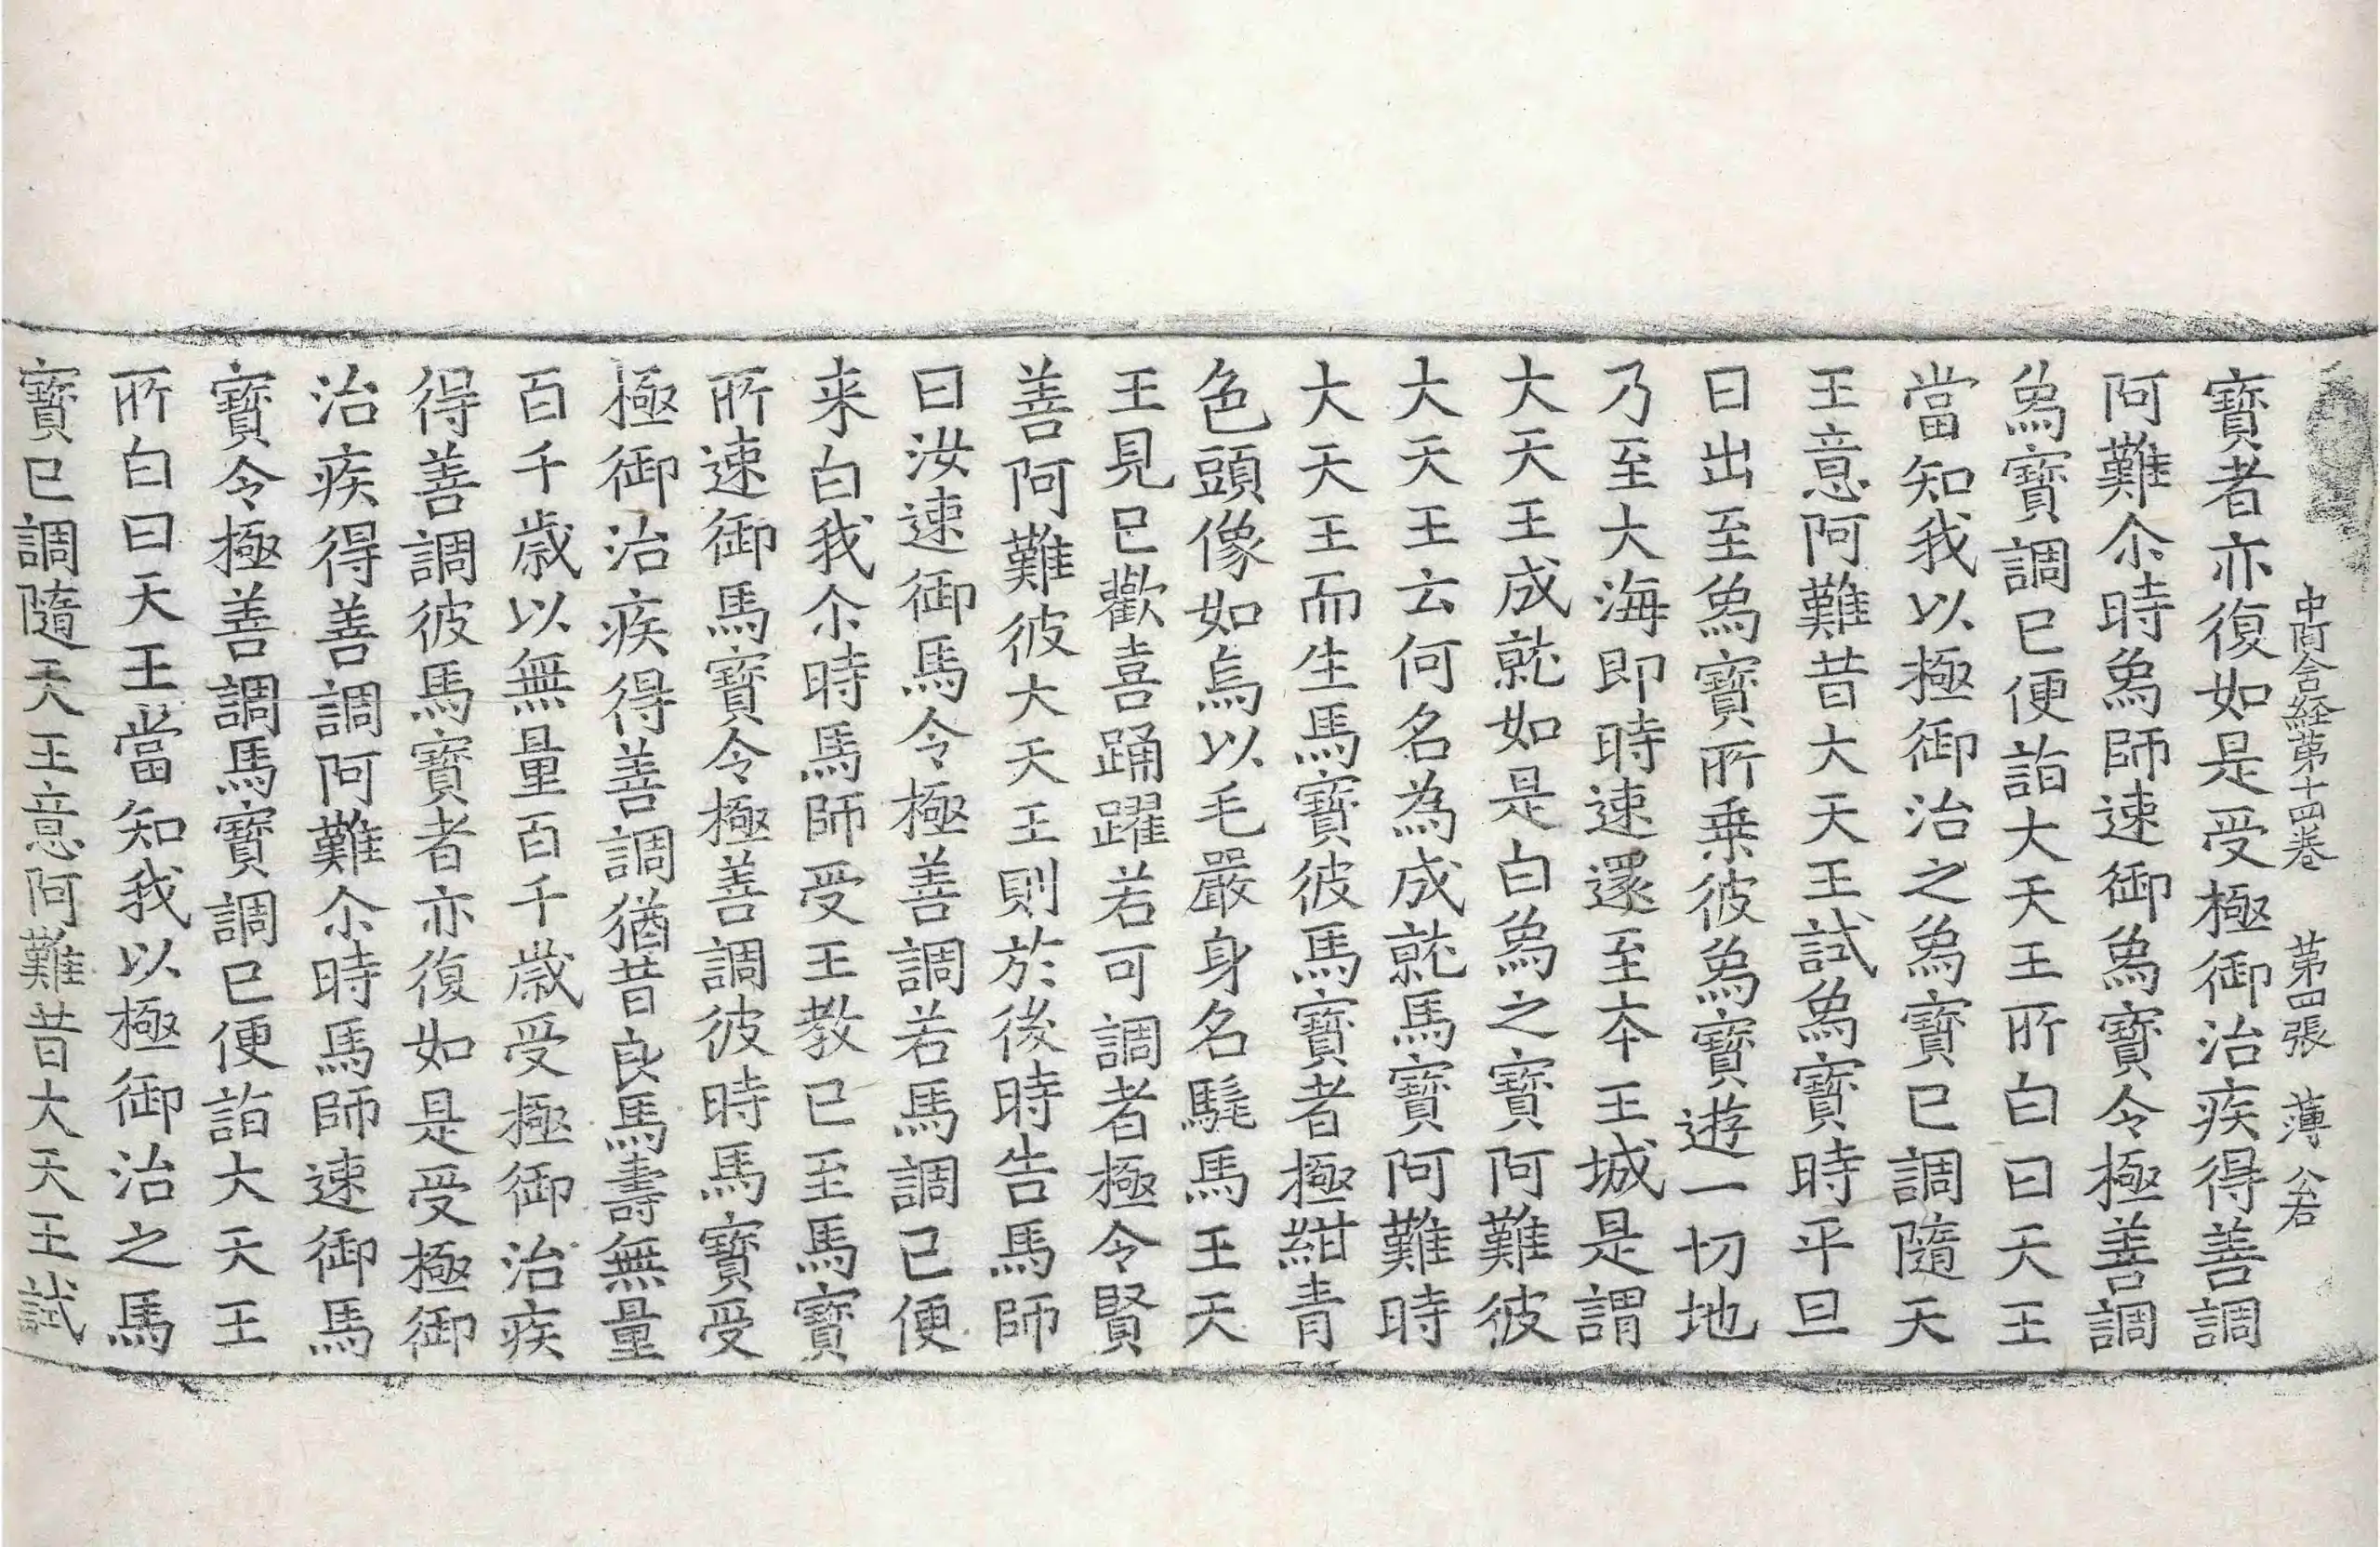 中阿含経第十四巻 第四張 薄
寶者亦復如是受極御治疾得善調
阿難尒時象師速御象寶令極善調
象寶調已便詣大天王所白曰天王
當知我以極御治之象寶已調隨天
王意阿難昔大天王試象寶時平旦
日出至象寶所乗彼象寶遊一切地
乃至大海即時速還至本王城是謂
大天王成就如是白象之寶阿難彼
大天王云何名為成就馬寶阿難時
大天王而生馬寶彼馬寶者極紺青
色頭像如烏以毛嚴身名髦馬王天
王見已歡喜踊躍若可調者極令賢
善阿難彼大天王則於後時告馬師
曰汝速御馬令極善調若馬調已便
来白我尒時馬師受王教已至馬寶
所速御馬寶令極善調彼時馬寶受
極御治疾得善調猶昔良馬壽無量
百千歳以無量百千歳受極御治疾
得善調彼馬寶者亦復如是受極御
治疾得善調阿難尒時馬師速御馬
寶令極善調馬寶調已便詣大天王
所白曰天王當知我以極御治之馬
寶已調隨天王意阿難昔大天王試